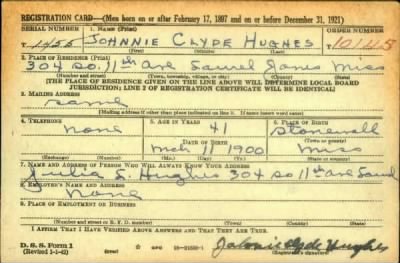 REGISTRATION CARD—(Men born on or after February 17, 1897 and on or before December 31, 1921)
SERIAL NUMBER 1. NAME (Print) ORDER NUMBER
1426 JOHNNIE CLYDE HUGHES 10145
(First) (Middle) (Last)
2. PLACE OF RESIDENCE (Print)
304 So. 11th ave Laurel Jones Miss
(Number and street) (Town, township, village, or city) (County) (State)
[THE PLACE OF RESIDENCE GIVEN ON THE LINE ABOVE WILL DETERMINE LOCAL BOARD
JURISDICTION; LINE 2 OF REGISTRATION CERTIFICATE WILL BE IDENTICAL]
3. MAILING ADDRESS
same
[Mailing address if other than place indicated on line 2. If same insert word same]
4. TELEPHONE 5. AGE IN YEARS 6. PLACE OF BIRTH
none 41 Stonewall
DATE OF BIRTH (Town or county)
Mch 11 1900 Miss
(Exchange) (Number) (Mo.) (Day) (Yr.) (State or country)
7. NAME AND ADDRESS OF PERSON WHO WILL ALWAYS KNOW YOUR ADDRESS
Julia S. Hughes 304 So 11th ave Laurel
8. EMPLOYER'S NAME AND ADDRESS
None
9. PLACE OF EMPLOYMENT OR BUSINESS
(Number and street or R. F. D. number) (Town) (County) (State)
I AFFIRM THAT I HAVE VERIFIED ABOVE ANSWERS AND THAT THEY ARE TRUE.
D. S. S. Form 1
(Revised 1-1-42) (over) GPO 16-21630-1 Johnnie Clyde Hughes
(Registrant's signature)